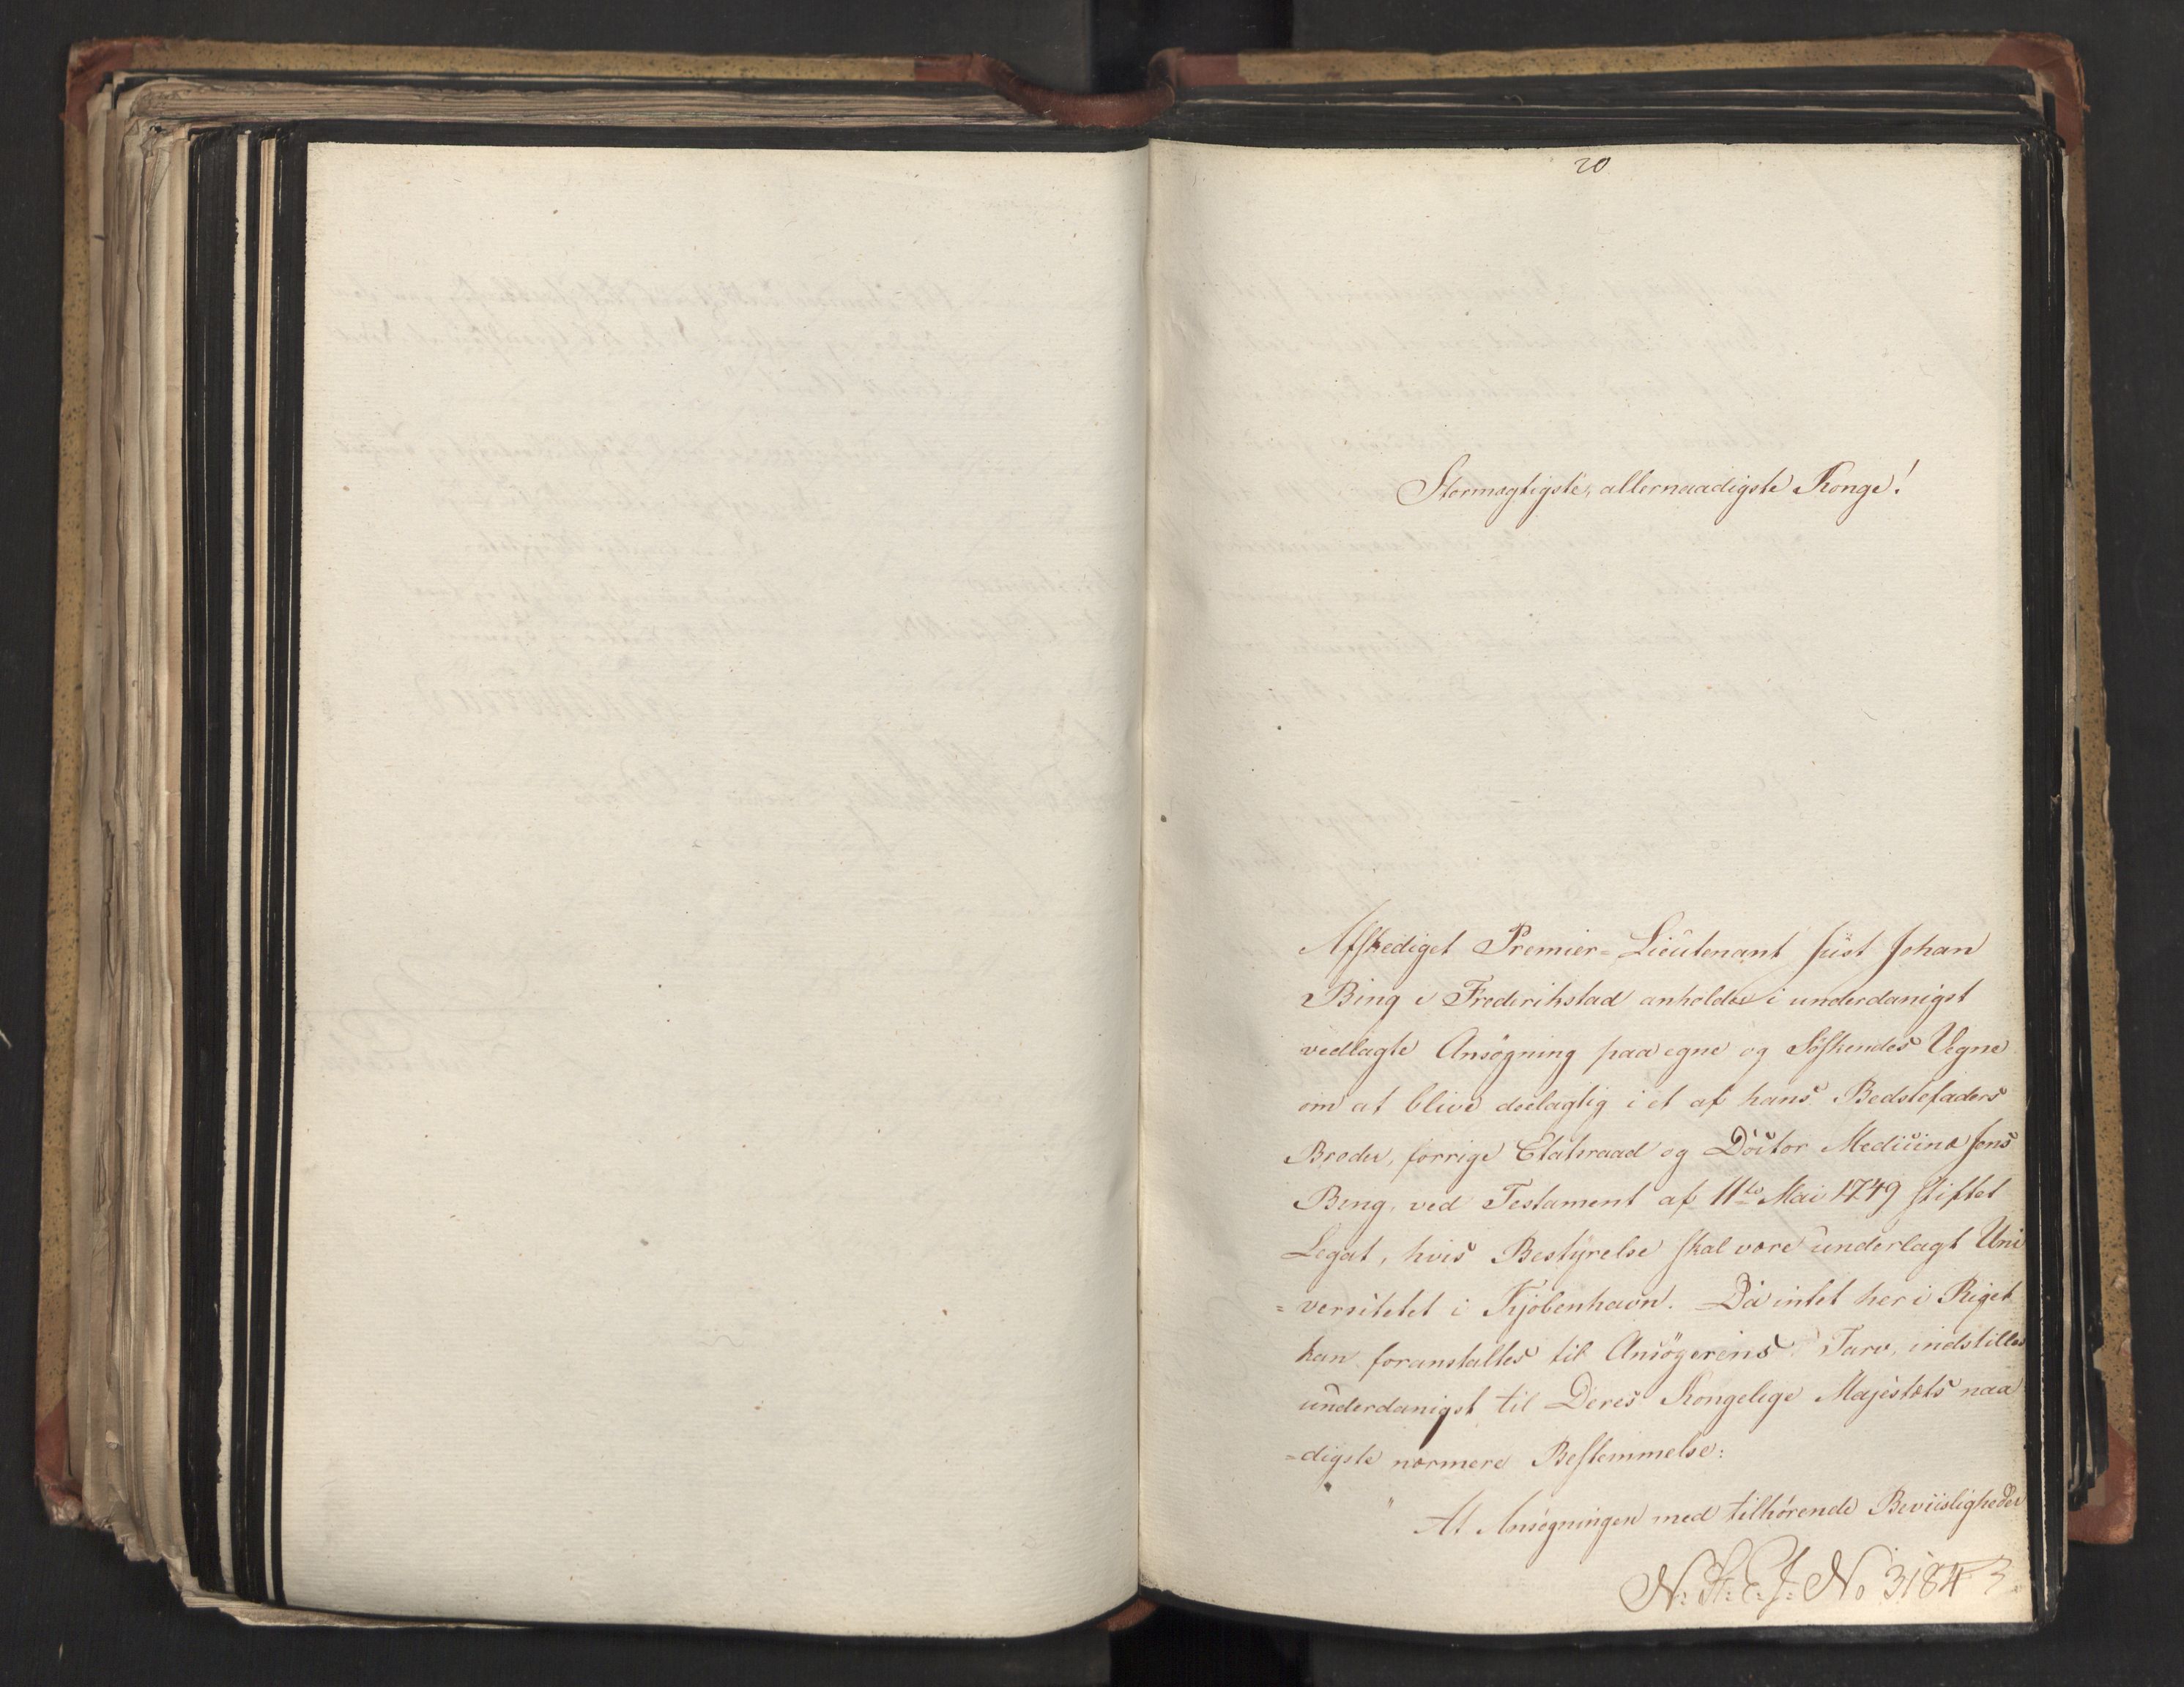 20
Stormægtigste, allernaadigste Konge!
Afskediget Premier=Lieutenant Just Johan
Bing i Frederikstad anholder i underdanigst
vedlagte Ansøgning paa egne og Søskendes Vegne
om at blive deelagtig i et af hans Bedstefaders
Broder, forrige Etatsraad og Doctor Medicinæ Jens
Bing, ved Testament af 11te Mai 1749 stiftet
Legat, hvis Bestyrelse skal være underlagt Uni
=versitetet i Kjøbenhavn. Da intet her i Riget
kan foranstaltes til Ansøgerens Tarv, indstilles
underdanigst til Deres Kongelige Majestæts naa
=digste nærmere Bestemmelse:
" At Ansøgningen med tilhørende Beviisligheder
N: St: E: J: No 3184 3